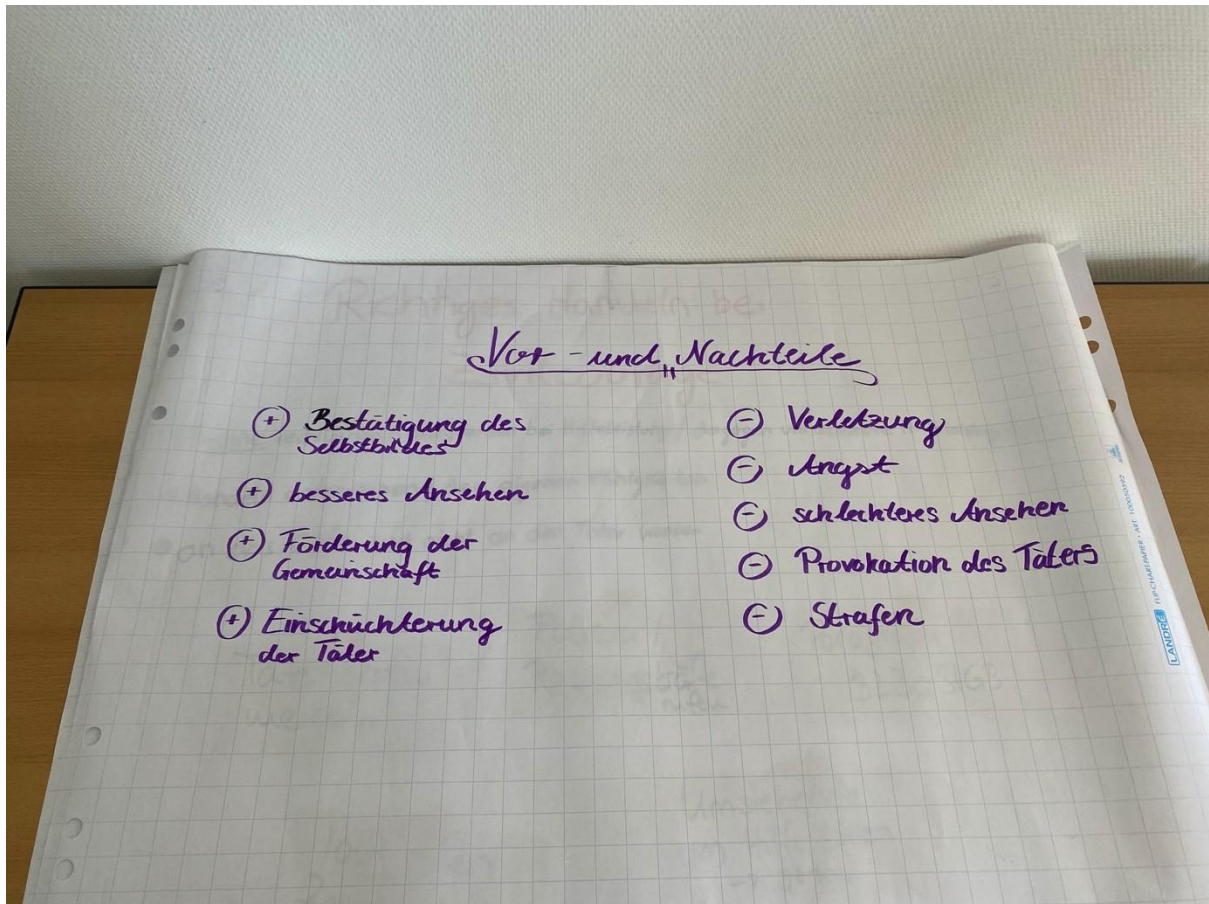 Vor - und Nachteile
⊕ Bestätigung des
Selbstbildes
⊕ besseres Ansehen
⊕ Förderung der
Gemeinschaft
⊕ Einschüchterung
der Täter
⊖ Verletzung
⊖ Angst
⊖ schlechteres Ansehen
⊖ Provokation des Täters
⊖ Strafen
LANDRÉ FLIPCHARTPAPIER • ART.
Richtiges Handeln bei